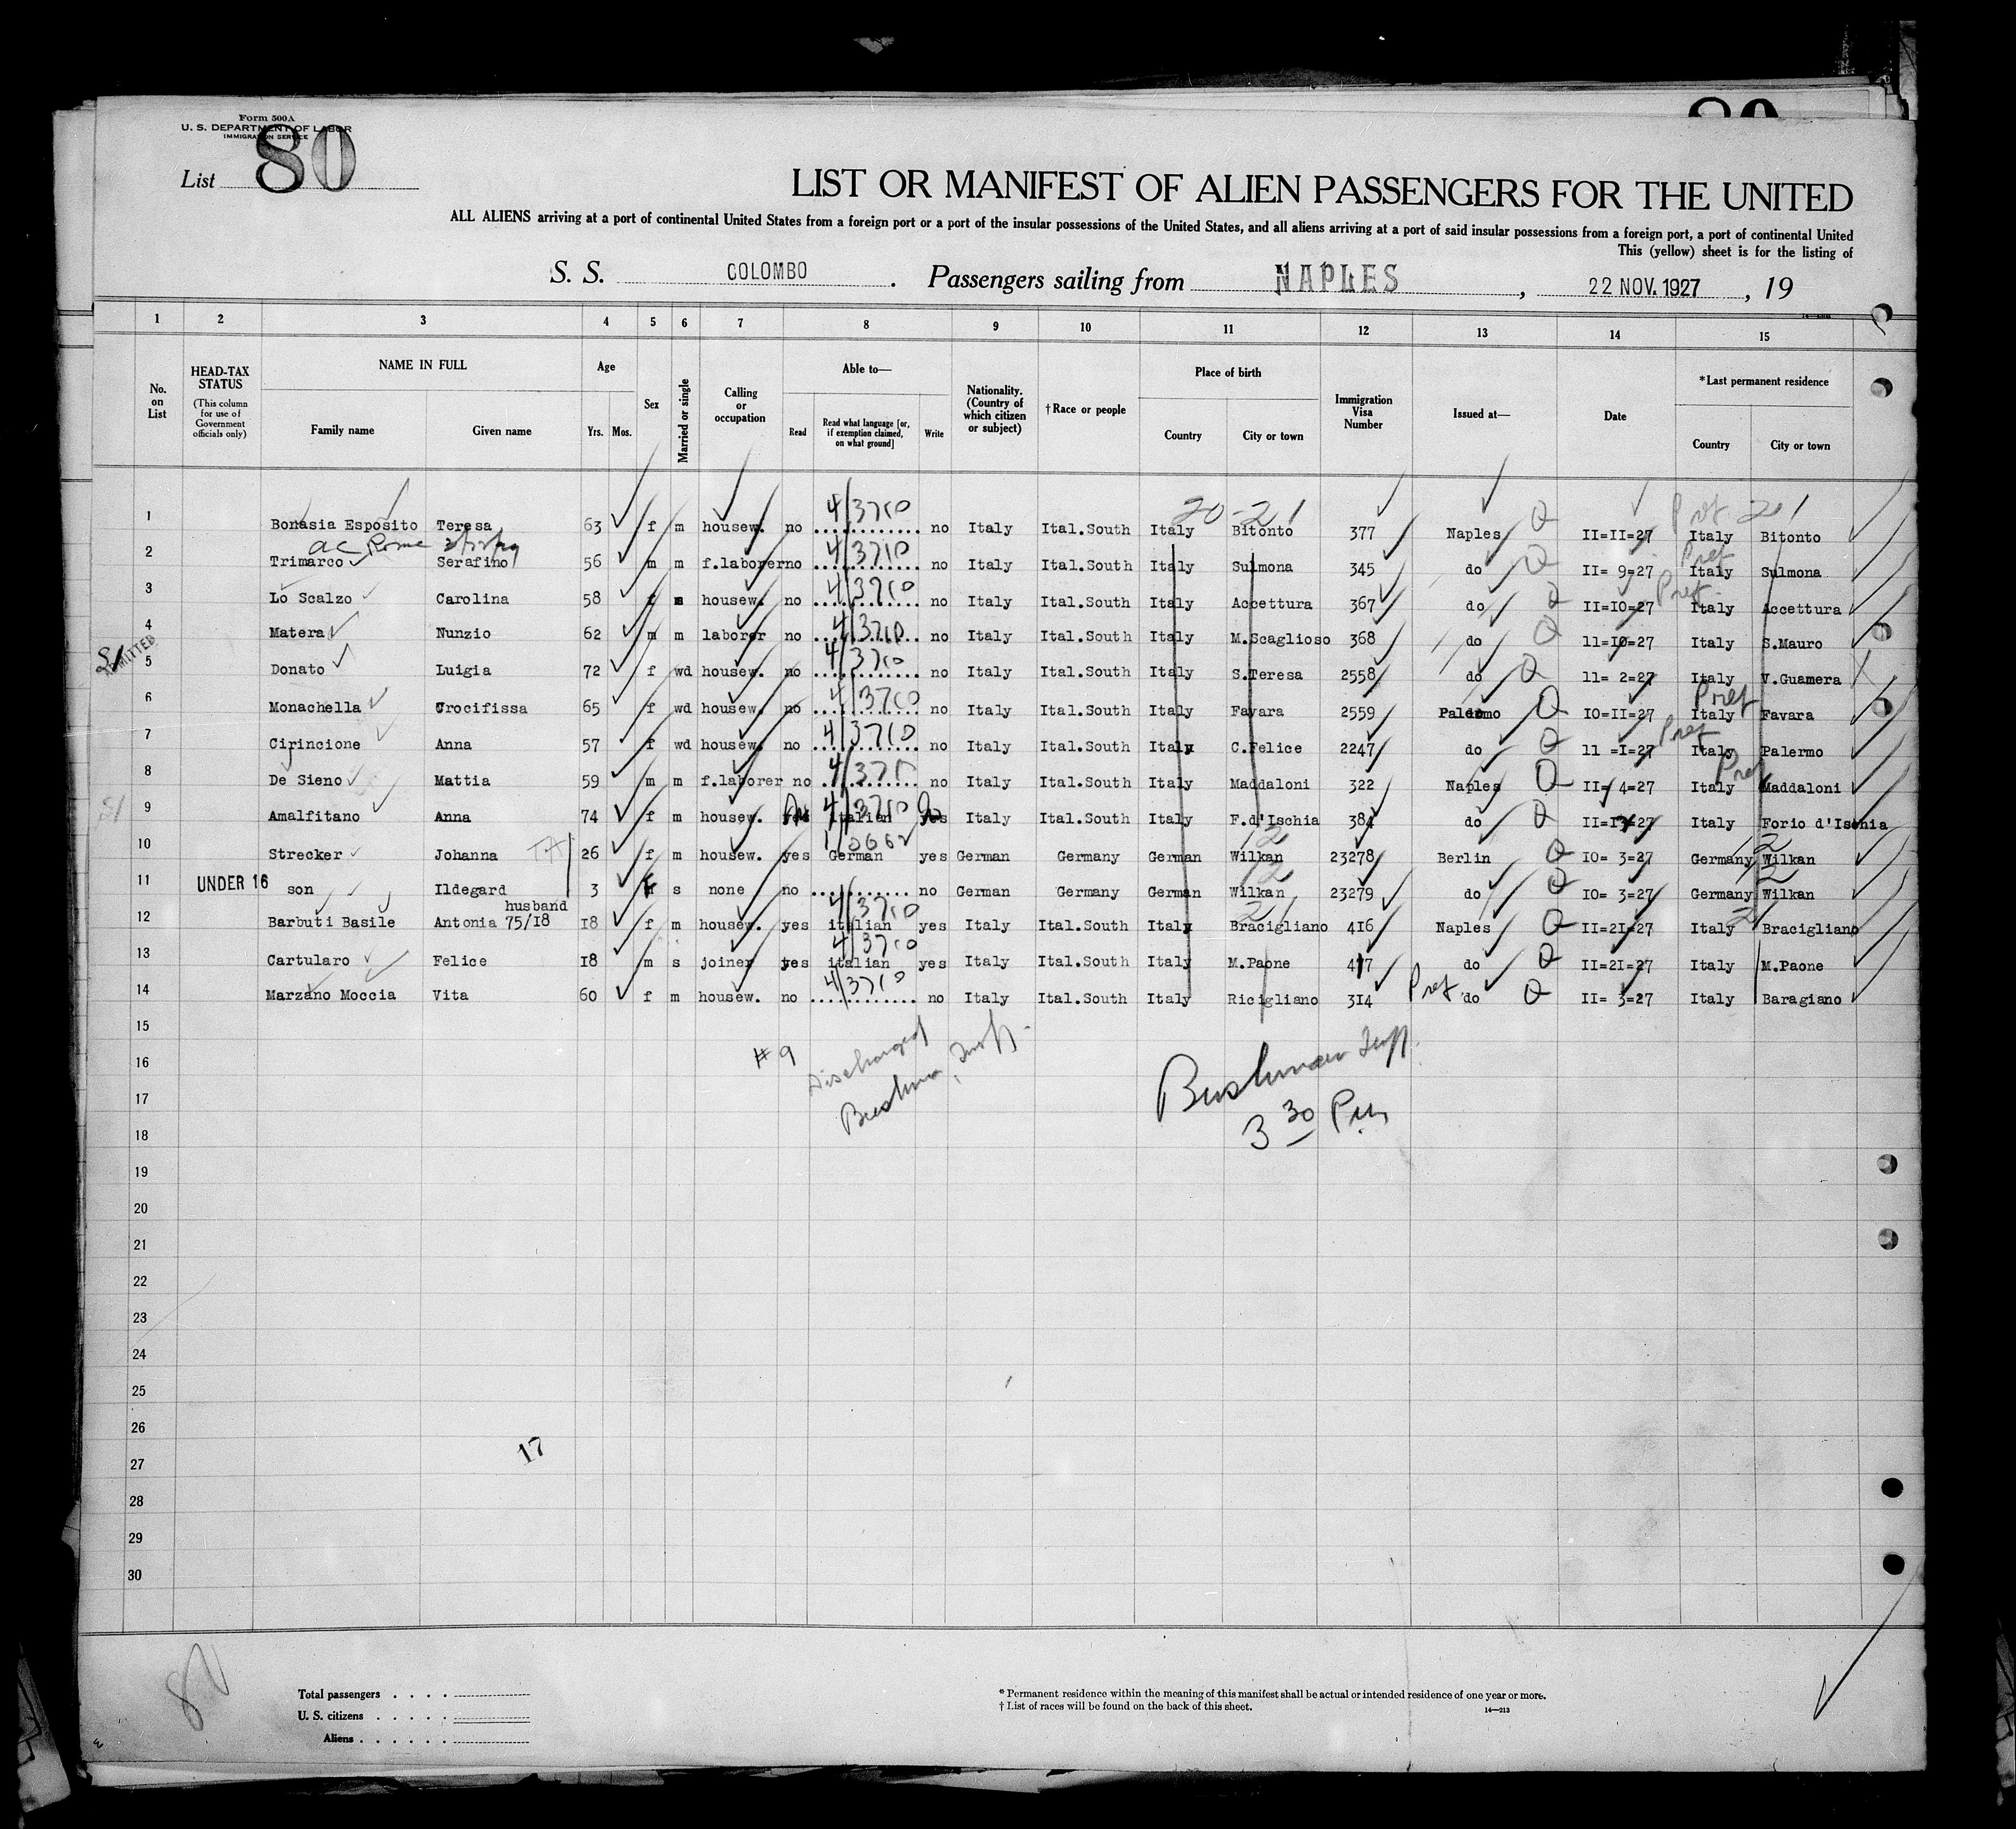 80
Form 500A
U. S. DEPARTMENT OF LABOR
IMMIGRATION SERVICE
List 80
LIST OR MANIFEST OF ALIEN PASSENGERS FOR THE UNITED
ALL ALIENS arriving at a port of continental United States from a foreign port or a port of the insular possessions of the United States, and all aliens arriving at a port of said insular possessions from a foreign port, a port of continental United
This (yellow) sheet is for the listing of
S. S. COLOMBO . Passengers sailing from NAPLES , 22 NOV. 1927 , 19
1 2 3 4 5 6 7 8 9 10 11 12 13 14 15
No. on List
HEAD-TAX STATUS
(This column for use of Government officials only)
NAME IN FULL
Family name Given name
Age
Yrs. Mos.
Sex
Married or single
Calling or occupation
Able to—
Read
Read what language [or, if exemption claimed, on what ground]
Write
Nationality. (Country of which citizen or subject)
†Race or people
Place of birth
Country City or town
Immigration Visa Number
Issued at—
Date
*Last permanent residence
Country City or town
4/3710 20-21 Pref 201
1 Bonasia Esposito Teresa 63 f m housew. no no Italy Ital.South Italy Bitonto 377 Naples Q II=II=27 Italy Bitonto
ac Rome
4/3710 Pref
2 Trimarco Serafino 56 m m f.laborer no no Italy Ital.South Italy Sulmona 345 do Q II= 9=27 Italy Sulmona
4/3710 Pref
3 Lo Scalzo Carolina 58 f housew. no no Italy Ital.South Italy Accettura 367 do Q II=IO=27 Italy Accettura
4/3710
4 Matera Nunzio 62 m m laborer no no Italy Ital.South Italy M.Scaglioso 368 do Q 11=10=27 Italy S.Mauro
SI ADMITTED
4/3710
5 Donato Luigia 72 f wd housew. no no Italy Ital.South Italy S.Teresa 2558 do Q 11= 2=27 Italy V.Guamera
4/3710 Pref
6 Monachella Crocifissa 65 f wd housew. no no Italy Ital.South Italy Favara 2559 Palermo Q IO=II=27 Italy Favara
4/3710 Pref
7 Cirincione Anna 57 f wd housew. no no Italy Ital.South Italy C.Felice 2247 do Q 11 =I=27 Italy Palermo
4/371 Pref
8 De Sieno Mattia 59 m m f.laborer no no Italy Ital.South Italy Maddaloni 322 Naples Q II= 4=27 Italy Maddaloni
SI 4/3710
9 Amalfitano Anna 74 f m housew. yes italian yes Italy Ital.South Italy F.d'Ischia 384 do Q Italy Forio d'Ischia
12 12
10 Strecker Johanna 26 f m housew. yes German yes German Germany German Wilkan 23278 Berlin Q IO= 3=27 Germany Wilkan
12 2
11 UNDER 16 son Ildegard 3 s none no no German Germany German Wilkan 23279 do Q IO= 3=27 Germany Wilkan
husband 4/3710 21
12 Barbuti Basile Antonia 75/I8 I8 f m housew. yes italian yes Italy Ital.South Italy Bracigliano 4I6 Naples Q II=2I=27 Italy Bracigliano
4/3710
13 Cartularo Felice I8 m s joiner yes italian yes Italy Ital.South Italy M.Paone 417 do Q II=2I=27 Italy M.Paone
4/3710 Pref
14 Marzano Moccia Vita 60 f m housew. no no Italy Ital.South Italy Ricigliano 3I4 do Q II= 3=27 Italy Baragiano
15
16
17
18
# 9 Discharged
Bushman, Insp.
Bushman Insp.
3 30 Pm
19
20
21
22
23
24
25
26
17
27
28
29
30
80
Total passengers
U. S. citizens
Aliens
* Permanent residence within the meaning of this manifest shall be actual or intended residence of one year or more.
† List of races will be found on the back of this sheet.
14—213